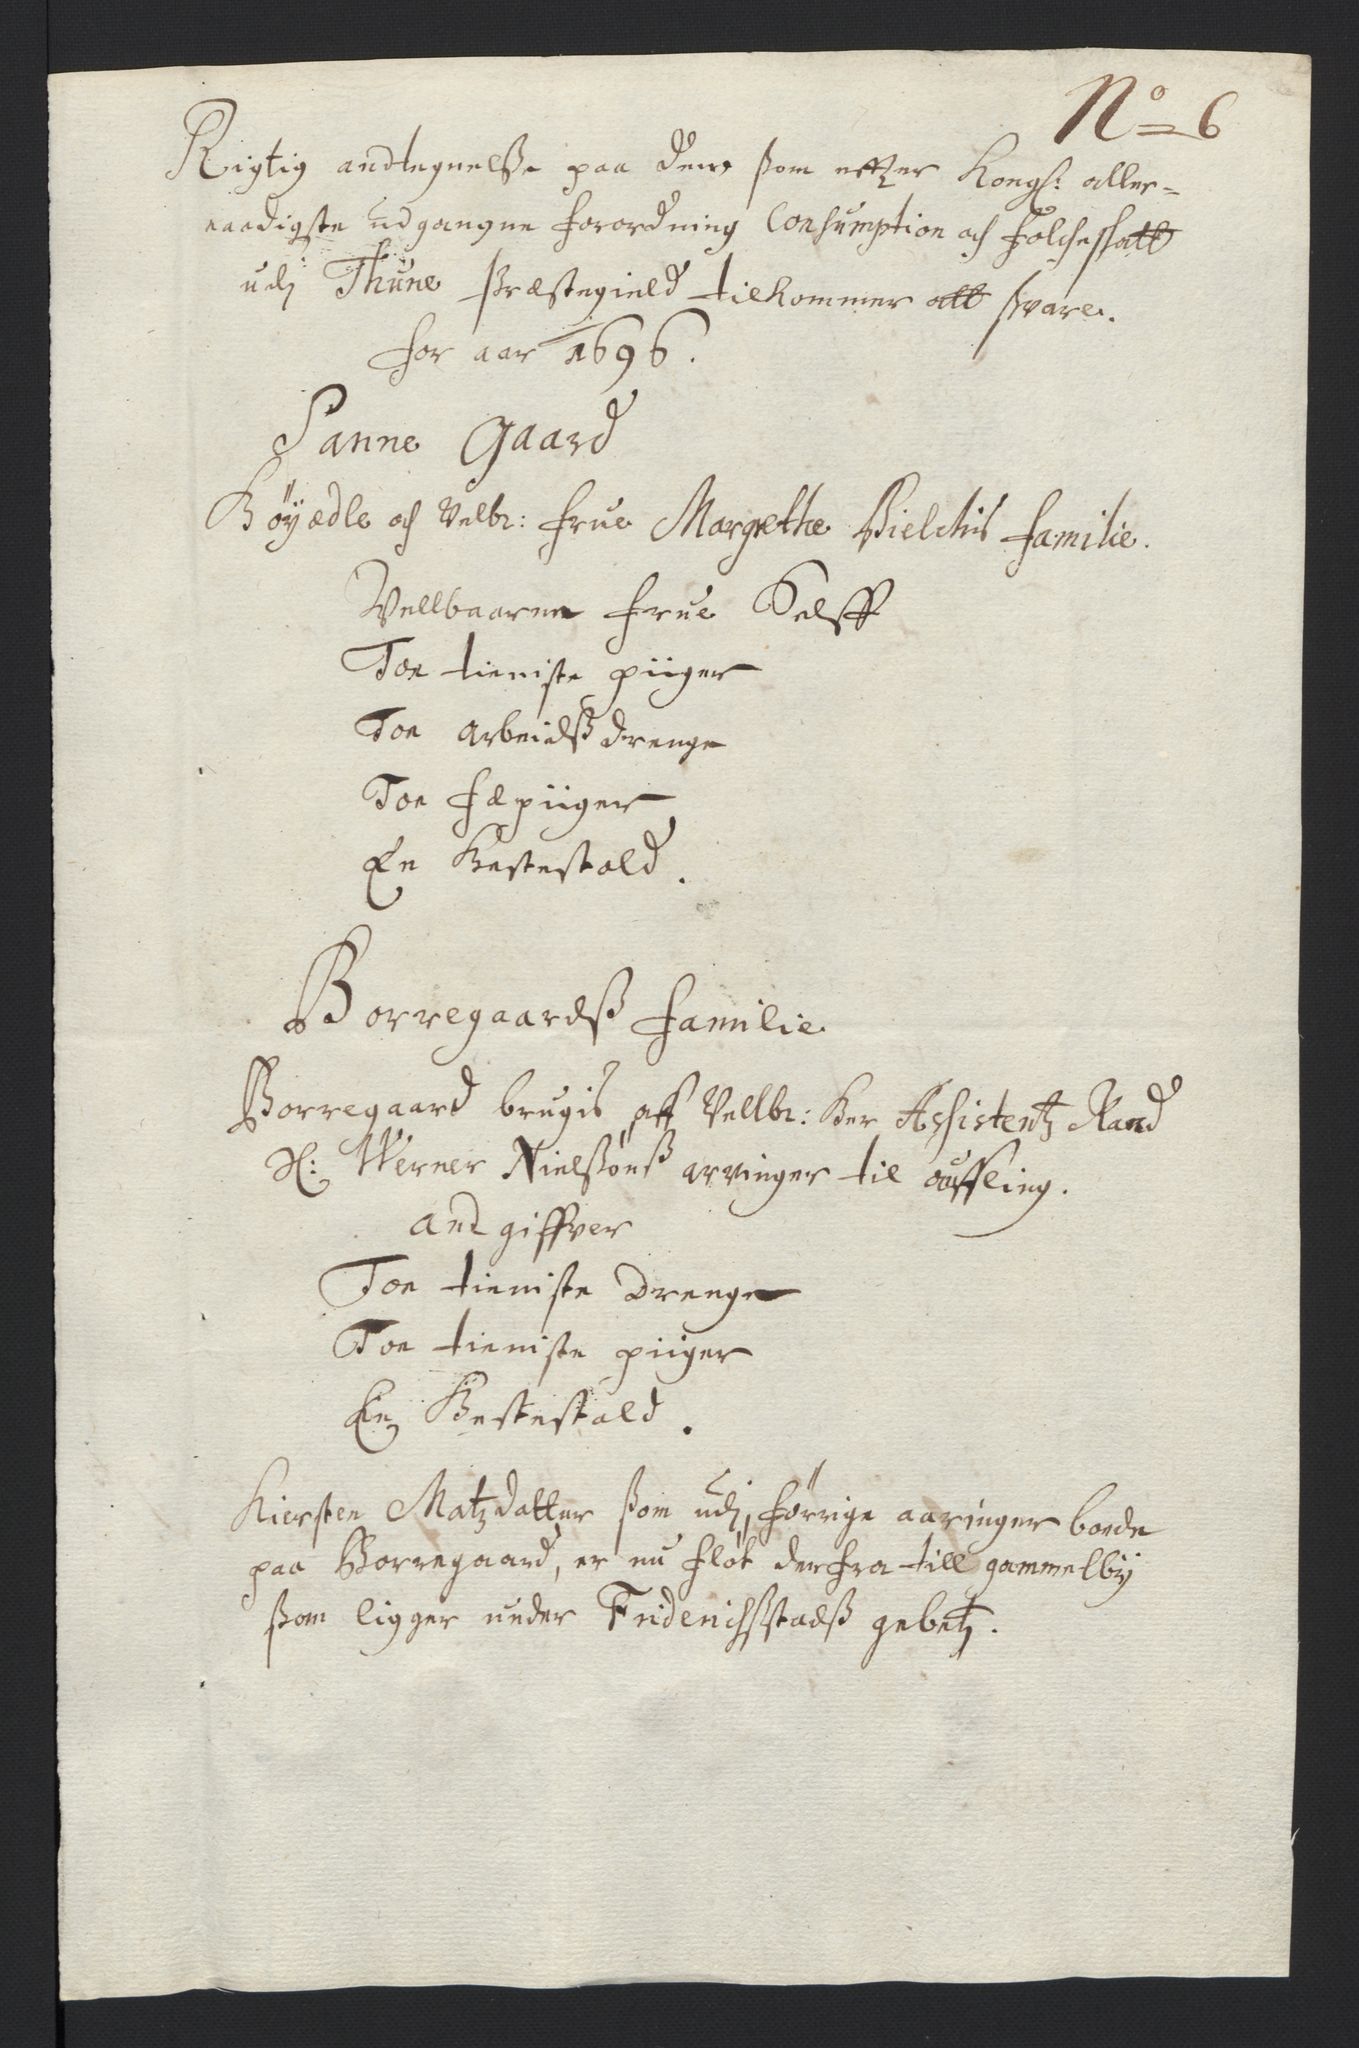 No 6
Rigtig andtegnelse paa dem ßom effter Kongl: aller-
naadigste udgangne forordning Consumption och folcheskatt
udj Thune Præstegield tilkommer att ßvare.
for aar 1696.
Sanne Gaard
Höÿædle och Velb: frue Margrethe Bielchis familie.
Vellbaarne frue Selff
Toe tieniste piiger
Toe arbeidß drenge
Toe fæpiiger
En Hestestald.
Borregaardß familie
Borregaard brugis aff Vellb: Her Assistentz Raad
Sl: Werner Nielßönß arvinger til auffling.
and giffver
Toe tieniste drenge
Toe tieniste piiger
En Hestestald.
Kiersten Matzdatter ßom udj, förrige aaringer boede
paa Borregaard, er nu fløt derfra till gammelbÿ
ßom ligger under Friderichstadß gebetz.